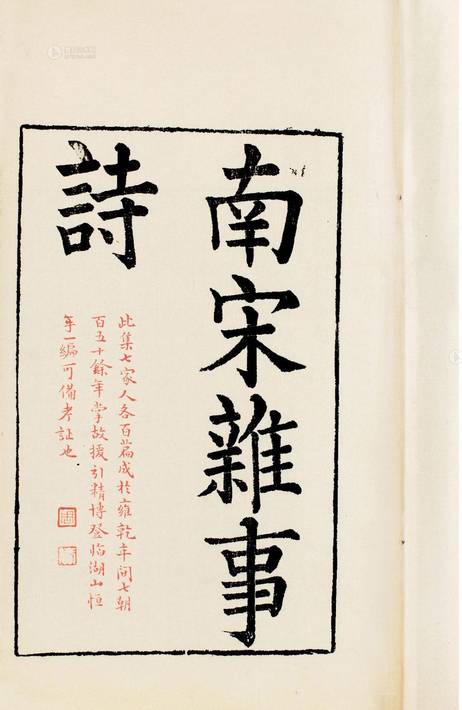 南宋雜事
詩
此集七家人各百篇成於雍乾年間七朝
百五十餘年掌故援引精博登臨湖山恒
年一編可備考証也